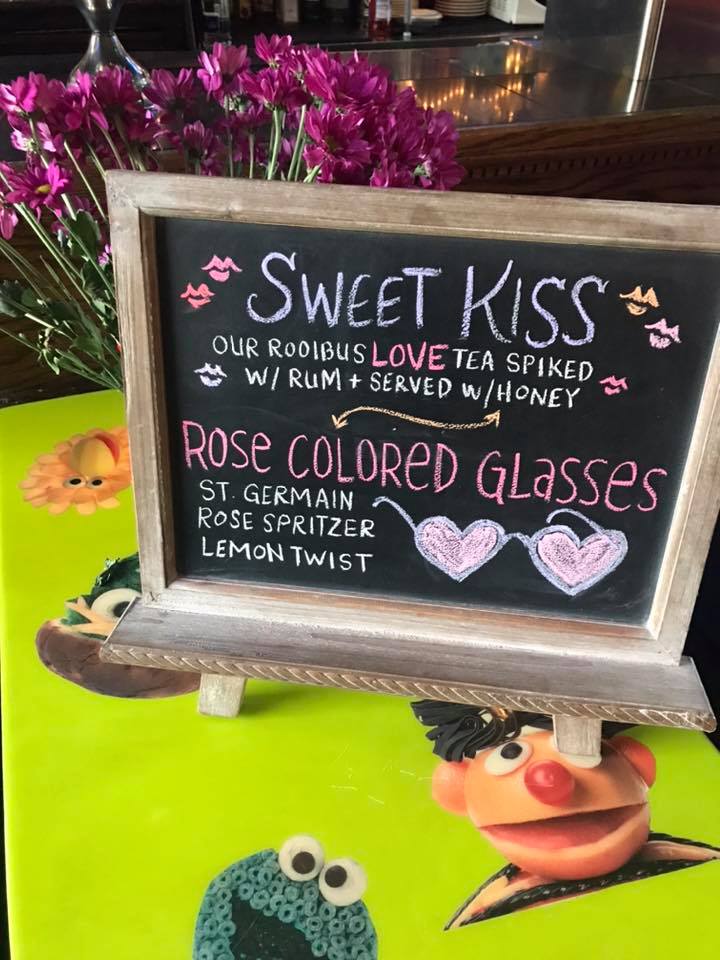 SWEET KISS
OUR ROOIBUS LOVE TEA SPIKED
W/ RUM + SERVED W/HONEY
ROSE COLORED GLASSES
ST. GERMAIN
ROSE SPRITZER
LEMON TWIST